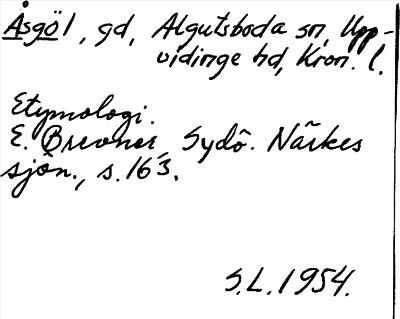 Åsgöl, gd, Algutsboda sn, Upp-
vidinge hd, Kron. l.
Etymologi.
E. Brevner, Sydö. Närkes
sjön., s. 163.
S.L. 1954.